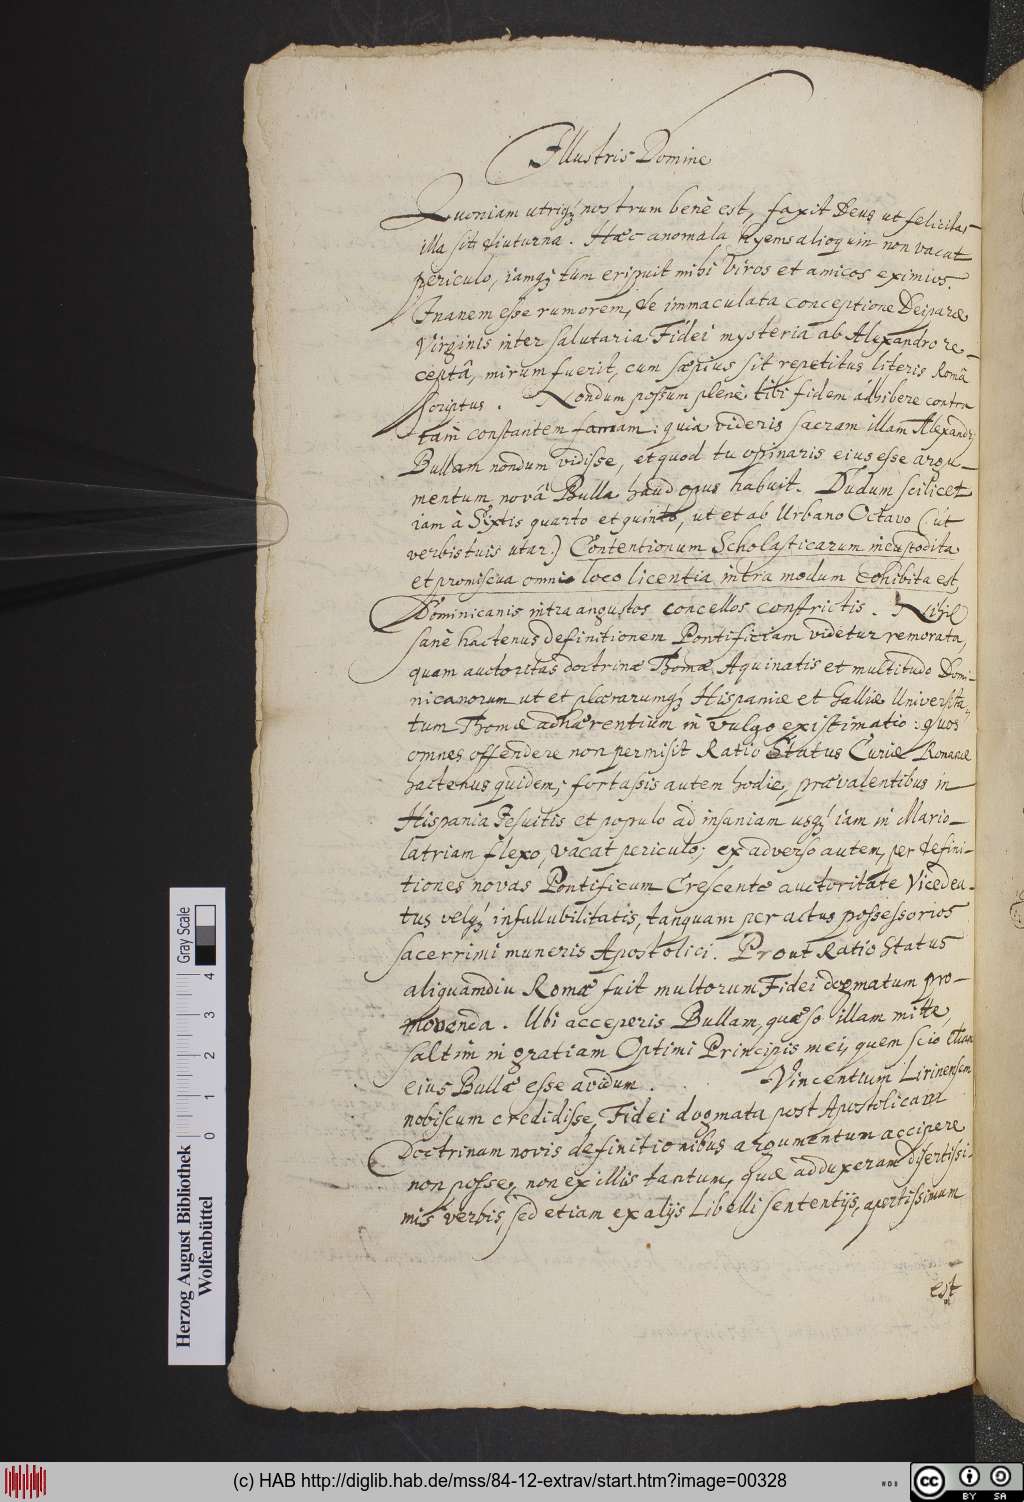 Illustris Domine
Quoniam utriq; nostrum benè est, faxit Deus ut felicitas
illa sit diuturna. Hæc anomala hyems alioquin non vacat
periculo, iamq; tum eripuit mihi viros et amicos eximios.
Inanem esse rumorem, de immaculata conceptione Deiparæ
Virginis inter salutaria Fidei mysteria ab Alexandro re-
ceptâ, mirum fuerit, cum sæpius sit repetitus literis Româ
scriptus. Nondum possum plenè tibi fidem adhibere contra
tam constantem famam: quia videris sacram illam Alexandri
Bullam nondum vidisse, et quod tu opinaris eius esse argu-
mentum novâ Bulla haud opus habuit. Dudum scilicet
iam à Sixtis quarto et quinto, ut et ab Urbano Octavo (ut
verbis tuis utar.) Contentionum Scholasticarum incustodita
et promiscua omni loco licentia intra modum cohibita est,
Dominicanis intra angustos concellos constrictis. Nihil
sanè hactenus definitionem Pontificiam videtur remorata,
quam auctoritas doctrinæ Thomæ Aquinatis et multitudo Domi-
nicanorum ut et plærarumq; Hispaniæ et Galliæ Universita-
tum Thomæ adhærentium in vulgo existimatio: quos
omnes offendere non permisit Ratio Status Curiæ Romanæ
hactenus quidem; fortassis autem hodie, prævalentibus in
Hispania Jesuitis et populo ad insaniam usq; iam in Mario-
latriam flexo, vacat periculo; ex adverso autem, per defini-
tiones novas Pontificum Crescente auctoritate Vicedea-
tus velq; infallubilitatis, tanquam per actus possessorios
sacerrimi muneris Apostolici. Prout Ratio Status
aliquamdiu Romæ fuit multorum Fidei dogmatum pro-
movenda. Ubi acceperis Bullam, quæso illam mitte,
saltim in gratiam Optimi Principis mei, quem scio etiam
eius Bullæ esse avidum. Vincentium Lirinensem
nobiscum credidisse, Fidei dogmata post Apostolicam
Doctrinam novis definitionibus argumentum accipere
non posse, non ex illis tantum, quæ adduxeram disertissi-
mis verbis, sed etiam ex alijs Libelli sententijs, apertissimum
est
Herzog August Bibliothek
Wolfenbüttel
0 1 2 3 4
Gray Scale
(c) HAB http://diglib.hab.de/mss/84-12-extrav/start.htm?image=00328
cc BY SA